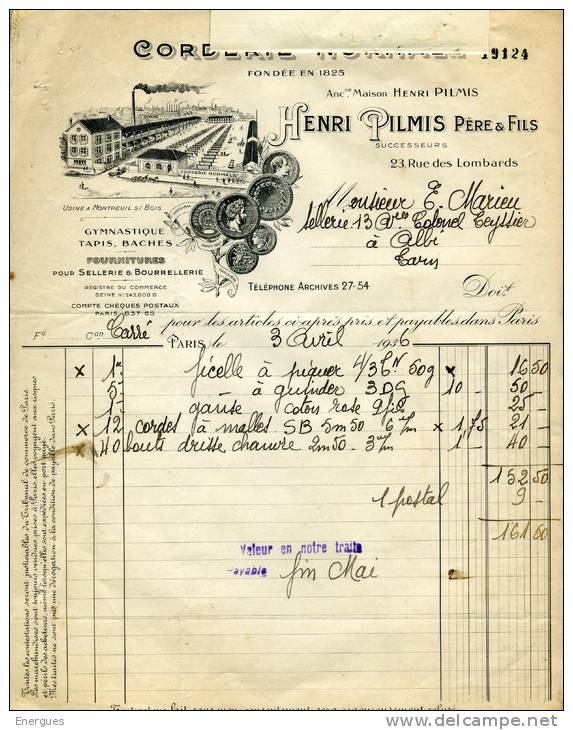 CORDERIE NORMALE 19124
FONDÉE EN 1825
Ancne Maison HENRI PILMIS
HENRI PILMIS PÈRE & FILS
SUCCESSEURS
23, Rue des Lombards
CORDERIE NORMALE
USINE A MONTREUIL S/ BOIS
GYMNASTIQUE
TAPIS, BACHES
FOURNITURES
POUR SELLERIE & BOURRELLERIE
REGISTRE DU COMMERCE
SEINE No 243.808 B
COMPTE CHÈQUES POSTAUX
PARIS 637-65
Monsieur E. Marieu
Sellerie 13 Colonel Teyssier
à Albi
Tarn
TÉLÉPHONE ARCHIVES 27-54
Doit
pour les articles ci-après pris et payables dans Paris
Fo Con Carré
PARIS, le 3 Avril 1936
x 1 ficelle à piquer 4/3 50g x 16 50
5 — à guinder 3 DG 10 50 —
1 ganse coton rose 9 fils 25 —
x 12 cordes à malles SB 5m50 x 1,75 21 —
x 40 bouts drisse chanvre 2m50 1 40 —
152 50
1 postal 9 —
161 50
Valeur en notre traite
payable fin Mai
Toutes les contestations seront justiciables du Tribunal de commerce de Paris.
Les marchandises sont toujours vendues prises à Paris, elles voyagent aux risques
et périls des acheteurs, même lorsqu'elles sont expédiées en port payé.
Mes traites ne sont pas une dérogation à la condition de payable dans Paris.
Energues
www.delcampe.net